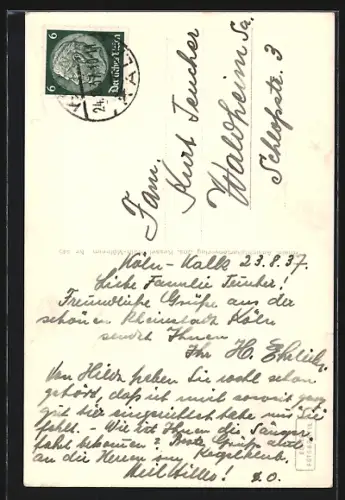 6 6
Deutsches Reich
24.
Fam.
Kurt Teucher
Waldheim Sa.
Schloßstr. 3
Köln-Kalk 23.8.37.
Liebe Familie Teucher!
Freundliche Grüße aus der
schönen Rheinstadt Köln
sendet Ihnen
Ihr H. Ehrlich
Von Hilde haben Sie wohl schon
gehört, daß ich mich soweit ganz
gut hier eingerichtet habe und Sie
fehlt. - Wie ist Ihnen die Sänger-
fahrt bekommen? Beste Grüße auch
an die Herren vom Kegelklub.
Heil Hitler! D.O.